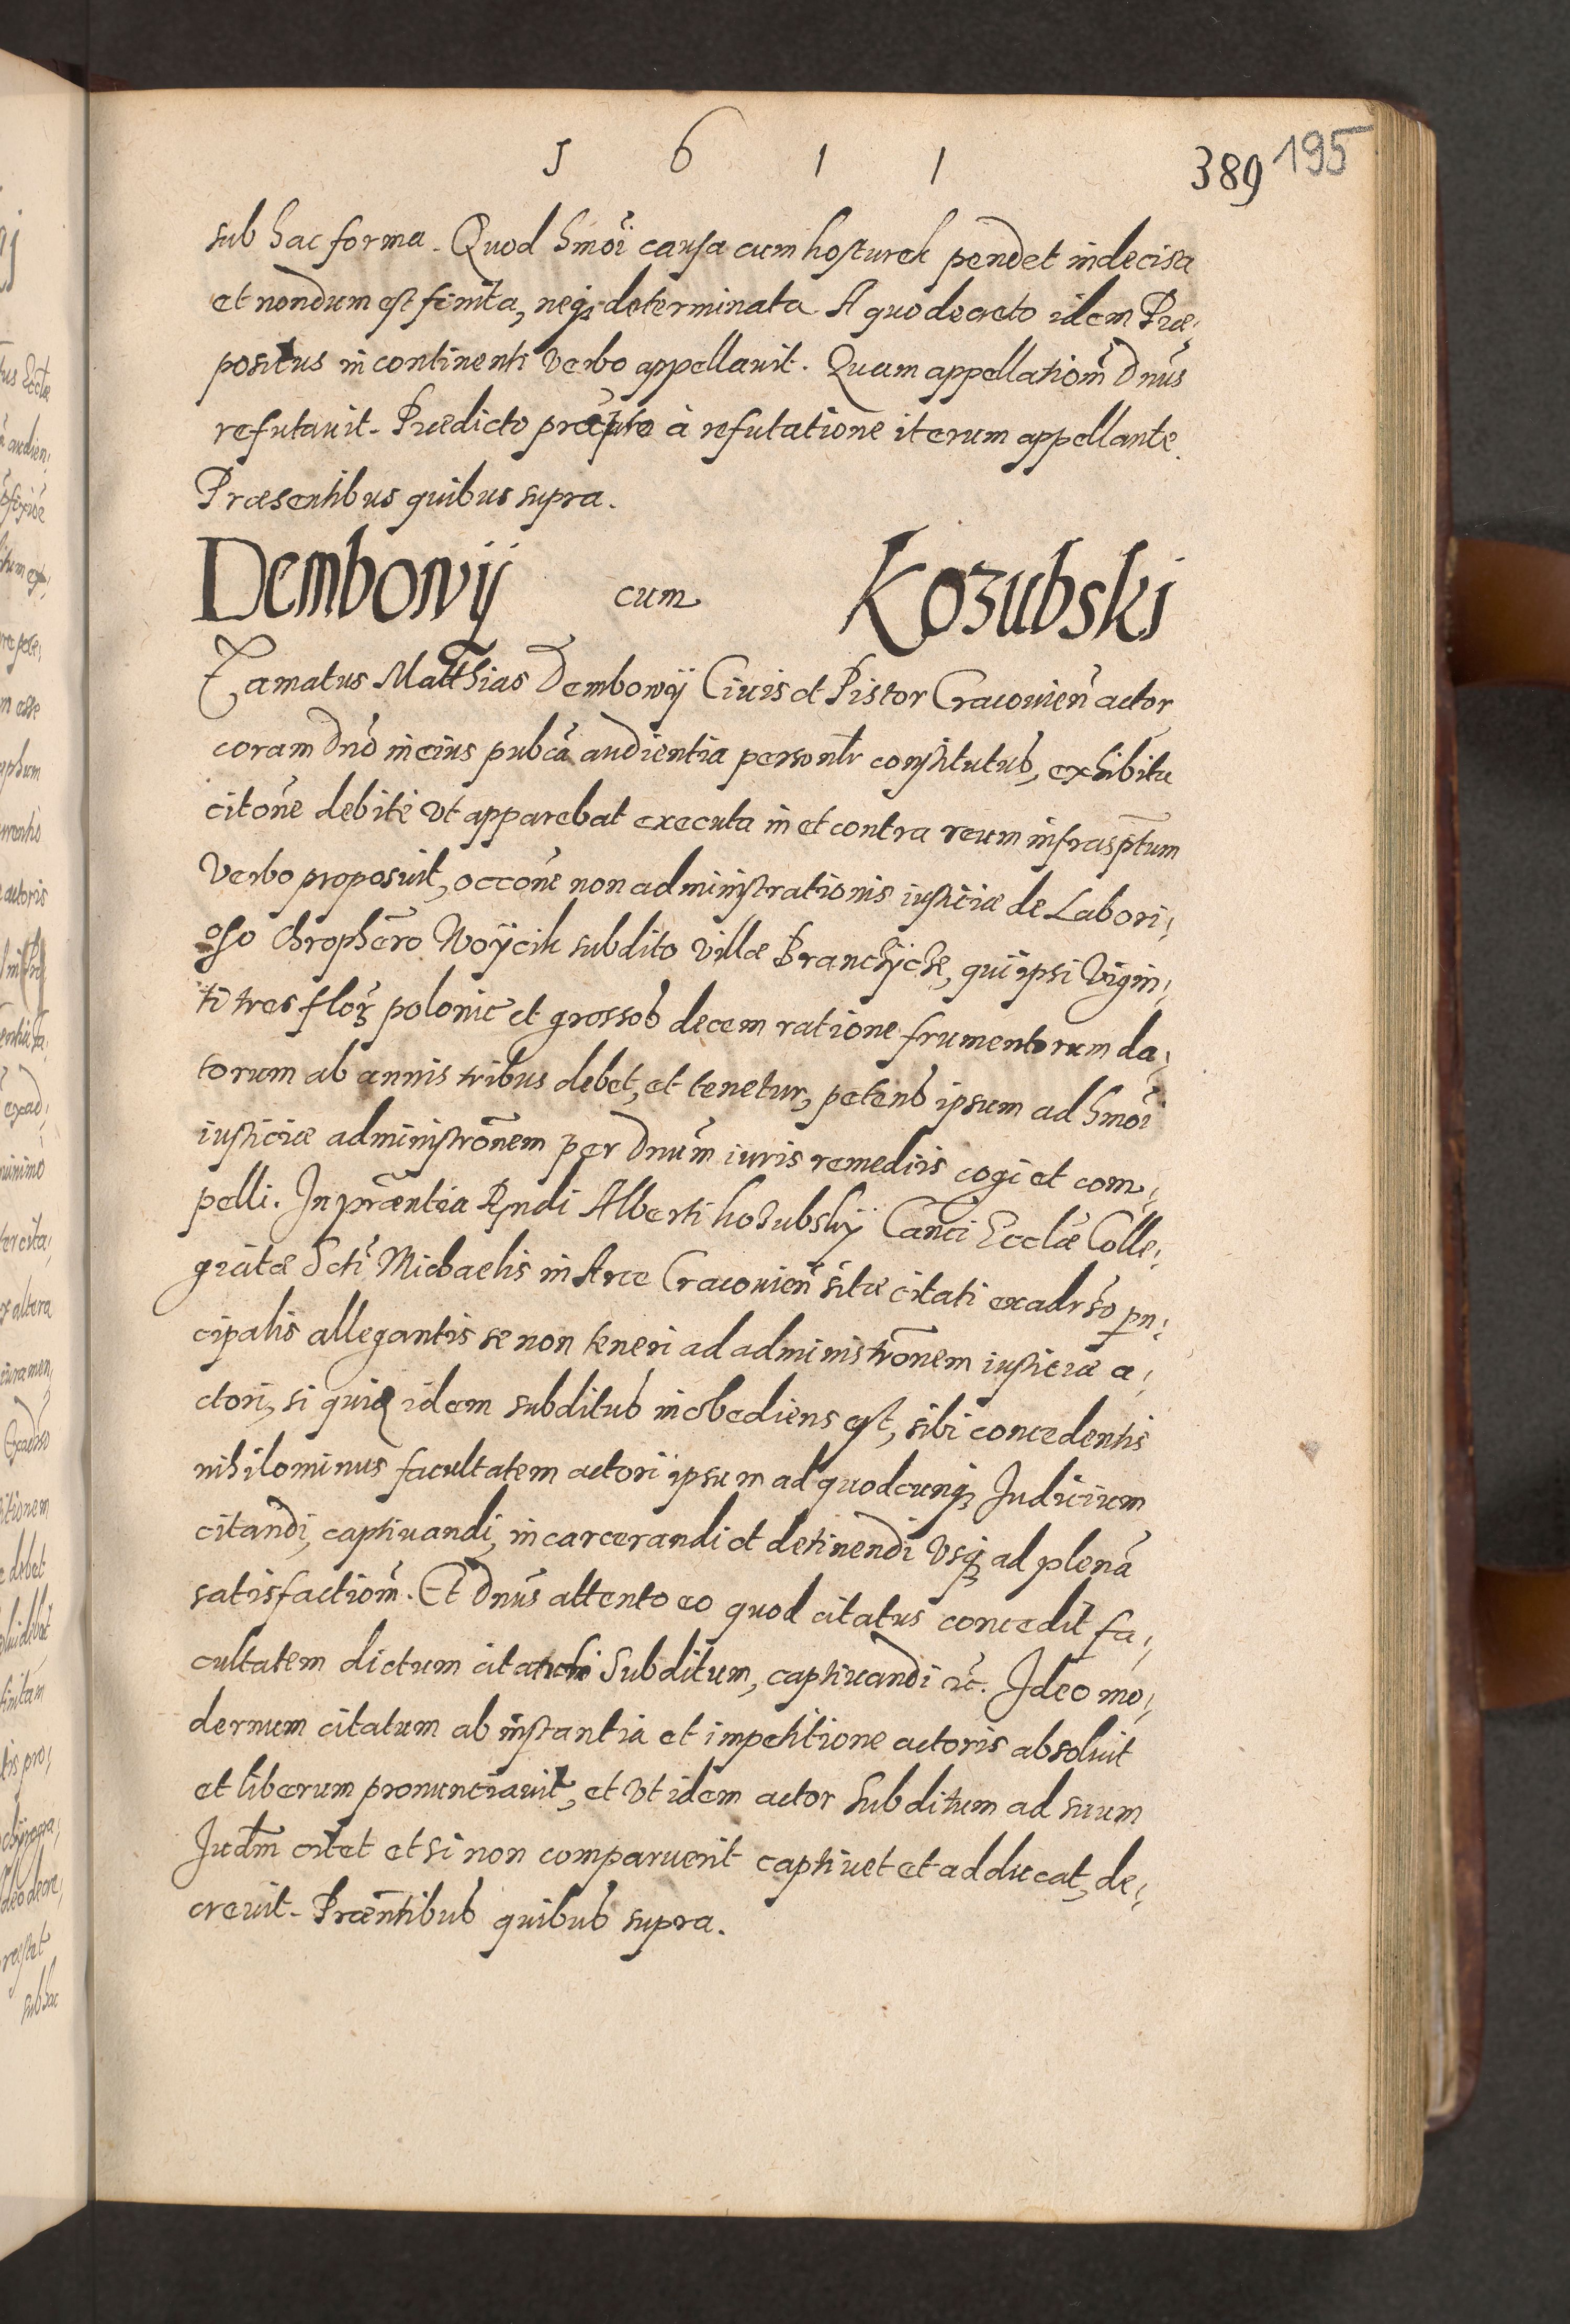 1 6 1 1
389 195
sub hac forma. Quod hmoi causa cum kosturek pendet indecisa
et nondum est finita, neq; determinata A quo decreto idem Præ¡
positus in continenti verbo appellauit. Quam appellationẽ Dnus
refutauit. Prædicto præpto à refutatione iterum appellante.
Præsentibus quibus supra.
Dembowÿ cum Kozubski
Famatus Matthias Dembowÿ Ciuis et Pistor Cracouieñ actor
coram dno in eius pubca audientia personlr constitutus, exhibita
citone debite vt apparebat executa in et contra reum infrasptum
verbo proposuit, occone non administrationis iusticiæ de Labori¡
oso Chrophero Woÿcik subdito villæ Branchÿche, qui ipsi vigin¡
ti tres flor polonic et grossos decem ratione frumentorum da¡
torum ab annis tribus debet, et tenetur, petens ipsum ad hmoi
iusticiæ administronem per dnum iuris remediis cogi et com¡
pelli. In præntia Rndi Alberti kozubskÿ Canci Ecclæ Colle¡
giatæ Scti Michaelis in Arce Cracouieñ sitæ citati ex aduerso pn¡
cipalis allegantis se non teneri ad administronem iusticiæ a¡
ctori, si quiq idem subditus inobediens est, sibi concedentis
nihilominus facultatem actori ipsum ad quodcunq; Iudicium
citandi, captiuandi, incarcerandi et detinendi vsq; ad plenã
satisfactionẽ. Et dnus attento eo quod citatus concedit fa¡
cultatem dictum citandi subditum, captiuandi etc. Ideo mo¡
dernum citatum ab instantia et impetitione actoris absoluit
et liberum pronunciauit, et vt idem actor subditum ad suum
Iudm citet et si non comparuerit captiuet et adducat, de¡
creuit. Præntibus quibus supra.